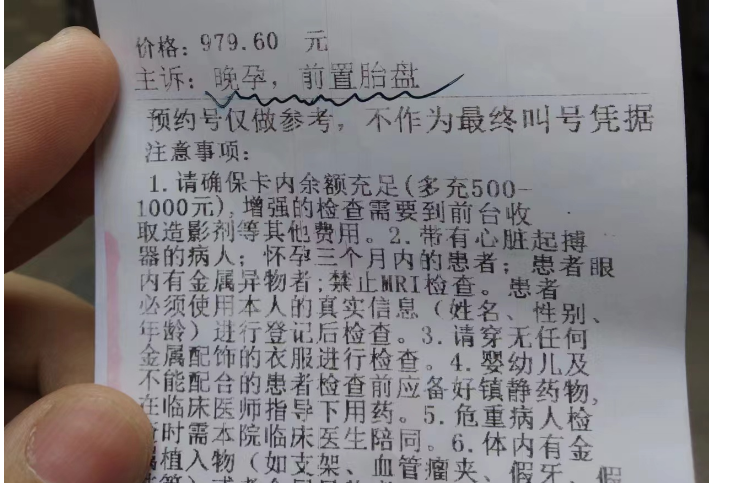 价格: 979.60 元
主诉: 晚孕, 前置胎盘
预约号仅做参考, 不作为最终叫号凭据
注意事项:
1.请确保卡内余额充足(多充500-
1000元),增强的检查需要到前台收
取造影剂等其他费用。2.带有心脏起搏
器的病人; 怀孕三个月内的患者; 患者眼
内有金属异物者;禁止MRI检查。患者
必须使用本人的真实信息（姓名、性别、
年龄）进行登记后检查。3.请穿无任何
金属配饰的衣服进行检查。4.婴幼儿及
不能配合的患者检查前应备好镇静药物,
在临床医师指导下用药。5.危重病人检
时需本院临床医生陪同。6.体内有金
植入物（如支架、血管瘤夹、假牙、假